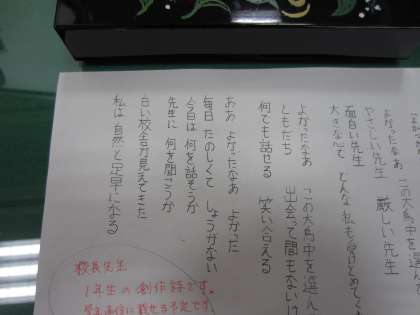 よかったなあ この大馬中を選んで
やさしい先生 厳しい先生
面白い先生
大きな心で どんな私も受けとめてく
よかったなあ この大馬中を選ん
ともだち 出会って間もないけ
何でも話せる 笑い合える
ああ よかったなあ よかった
毎日 たのしくて しょうがない
今日は 何を話そうか
先生に 何を聞こうか
白い校舎が見えてきた
私は 自然と足早になる
校長先生
1年生の創作詩です。
学年通信に載せる予定です